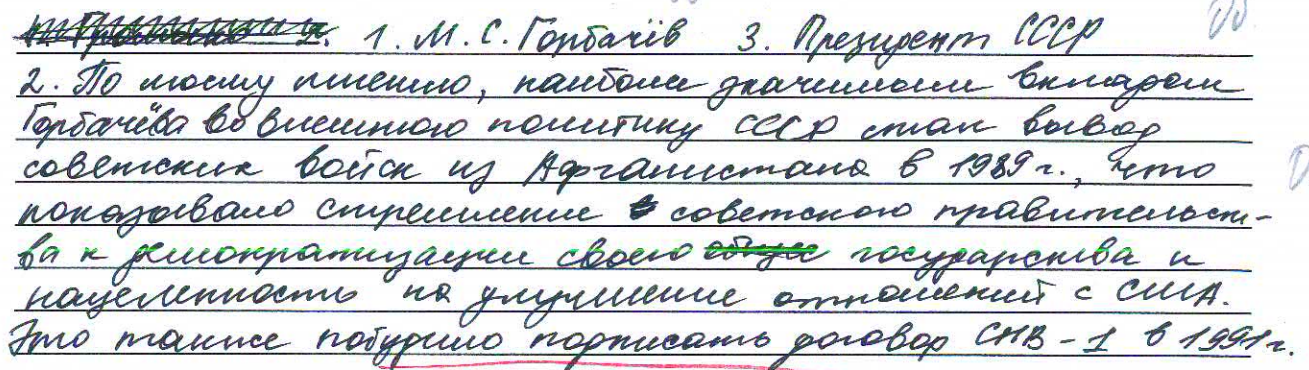 1. М. С. Горбачёв 3. Президент СССР
2. По моему мнению, наиболее значимым вкладом
Горбачёва во внешнюю политику СССР стал вывод
советских войск из Афганистана в 1989 г., что
показывало стремление советского правительст-
ва к демократизации своего государства и
нацеленность на улучшение отношений с США.
Это также побудило подписать договор СНВ-1 в 1991 г.